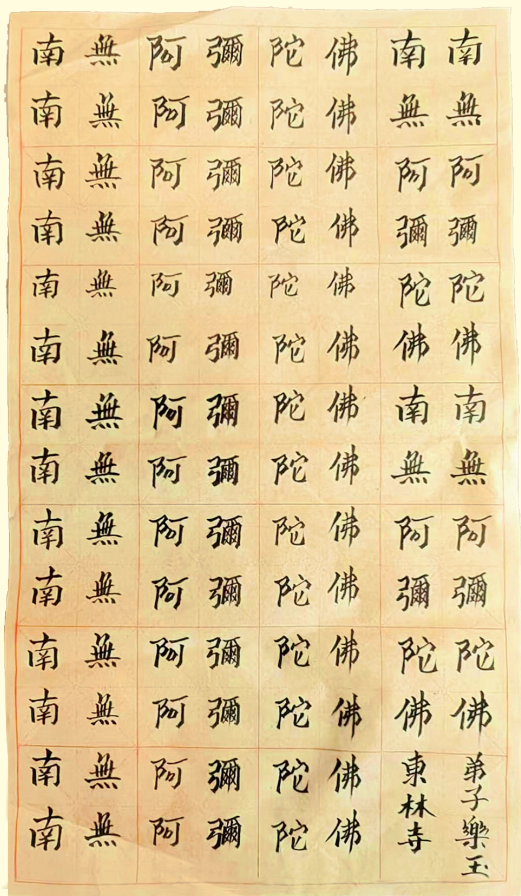 南無阿彌陀佛
南無阿彌陀佛
南無阿彌陀佛
南無阿彌陀佛
南無阿彌陀佛
南無阿彌陀佛
南無阿彌陀佛
南無阿彌陀佛
南無阿彌陀佛
南無阿彌陀佛
南無阿彌陀佛
南無阿彌陀佛
南無阿彌陀佛
南無阿彌陀佛
南無阿彌陀佛南無阿彌陀佛東林寺
南無阿彌陀佛南無阿彌陀佛弟子樂玉